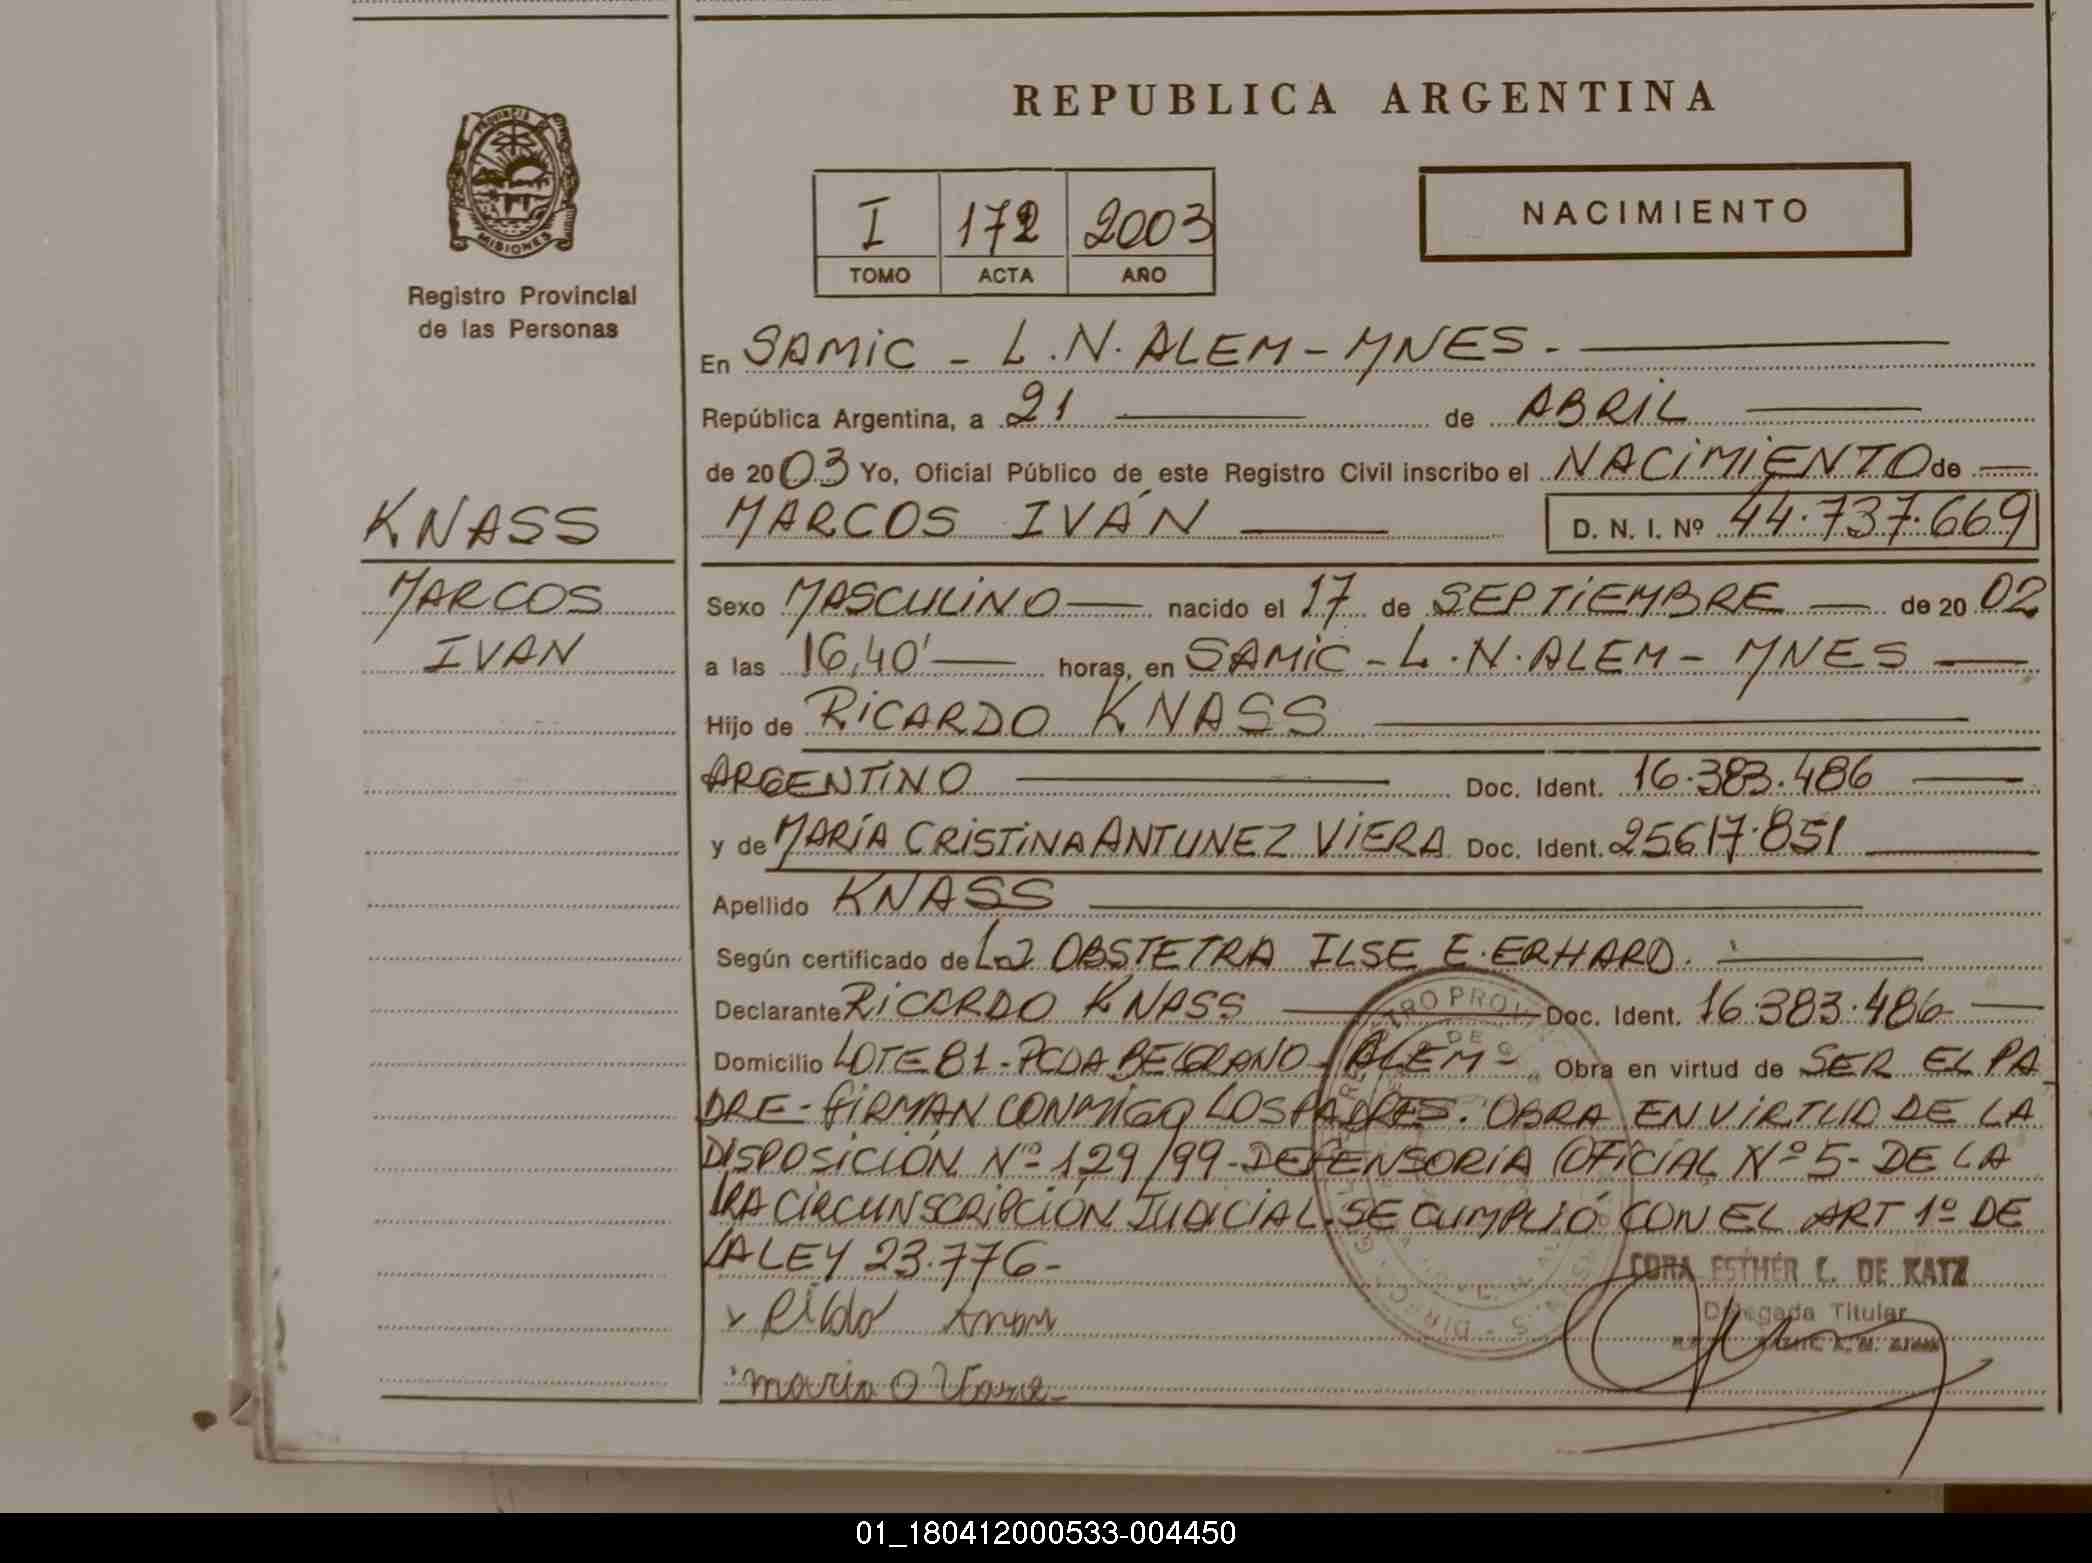 REPUBLICA ARGENTINA
PROVINCIA DE
MISIONES
Registro Provincial
de las Personas
I 172 2003
TOMO ACTA AÑO
NACIMIENTO
En SAMiC - L.N. ALEM - MNES.
República Argentina, a 21 de ABRiL
de 2003 Yo, Oficial Público de este Registro Civil inscribo el NACiMiENTO de
KNASS
MARCOS IVÁN D. N. I. Nº 44.737.669
MARCOS
IVAN
Sexo MASCULiNO nacido el 17 de SEPTiEMBRE de 20 02
a las 16,40' horas, en SAMiC - L.N. ALEM - MNES
Hijo de RiCARDO KNASS
ARGENTiNO Doc. Ident. 16.383.486
y de MARÍA CRiSTiNA ANTUNEZ ViERA Doc. Ident. 25617.851
Apellido KNASS
Según certificado de La OBSTETRA ILSE E. ERHARD.
Declarante RiCARDO KNASS Doc. Ident. 16.383.486
Domicilio LOTE 81 - PCDA BELGRANO - ALEM - Obra en virtud de SER EL PA
DRE - FiRMAN CONMiGO LOS PADRES. OBRA EN ViRTUD DE LA
DiSPOSiCiÓN Nº 129/99 - DEFENSORiA OFiCiAL Nº 5 - DE LA
1RA CiRCUNSCRiPCiÓN JUDiCiAL. SE CUMPLiÓ CON EL ART 1º DE
LA LEY 23.776 -
CORA ESTHER C. DE KATZ
Delegada Titular
01_180412000533-004450